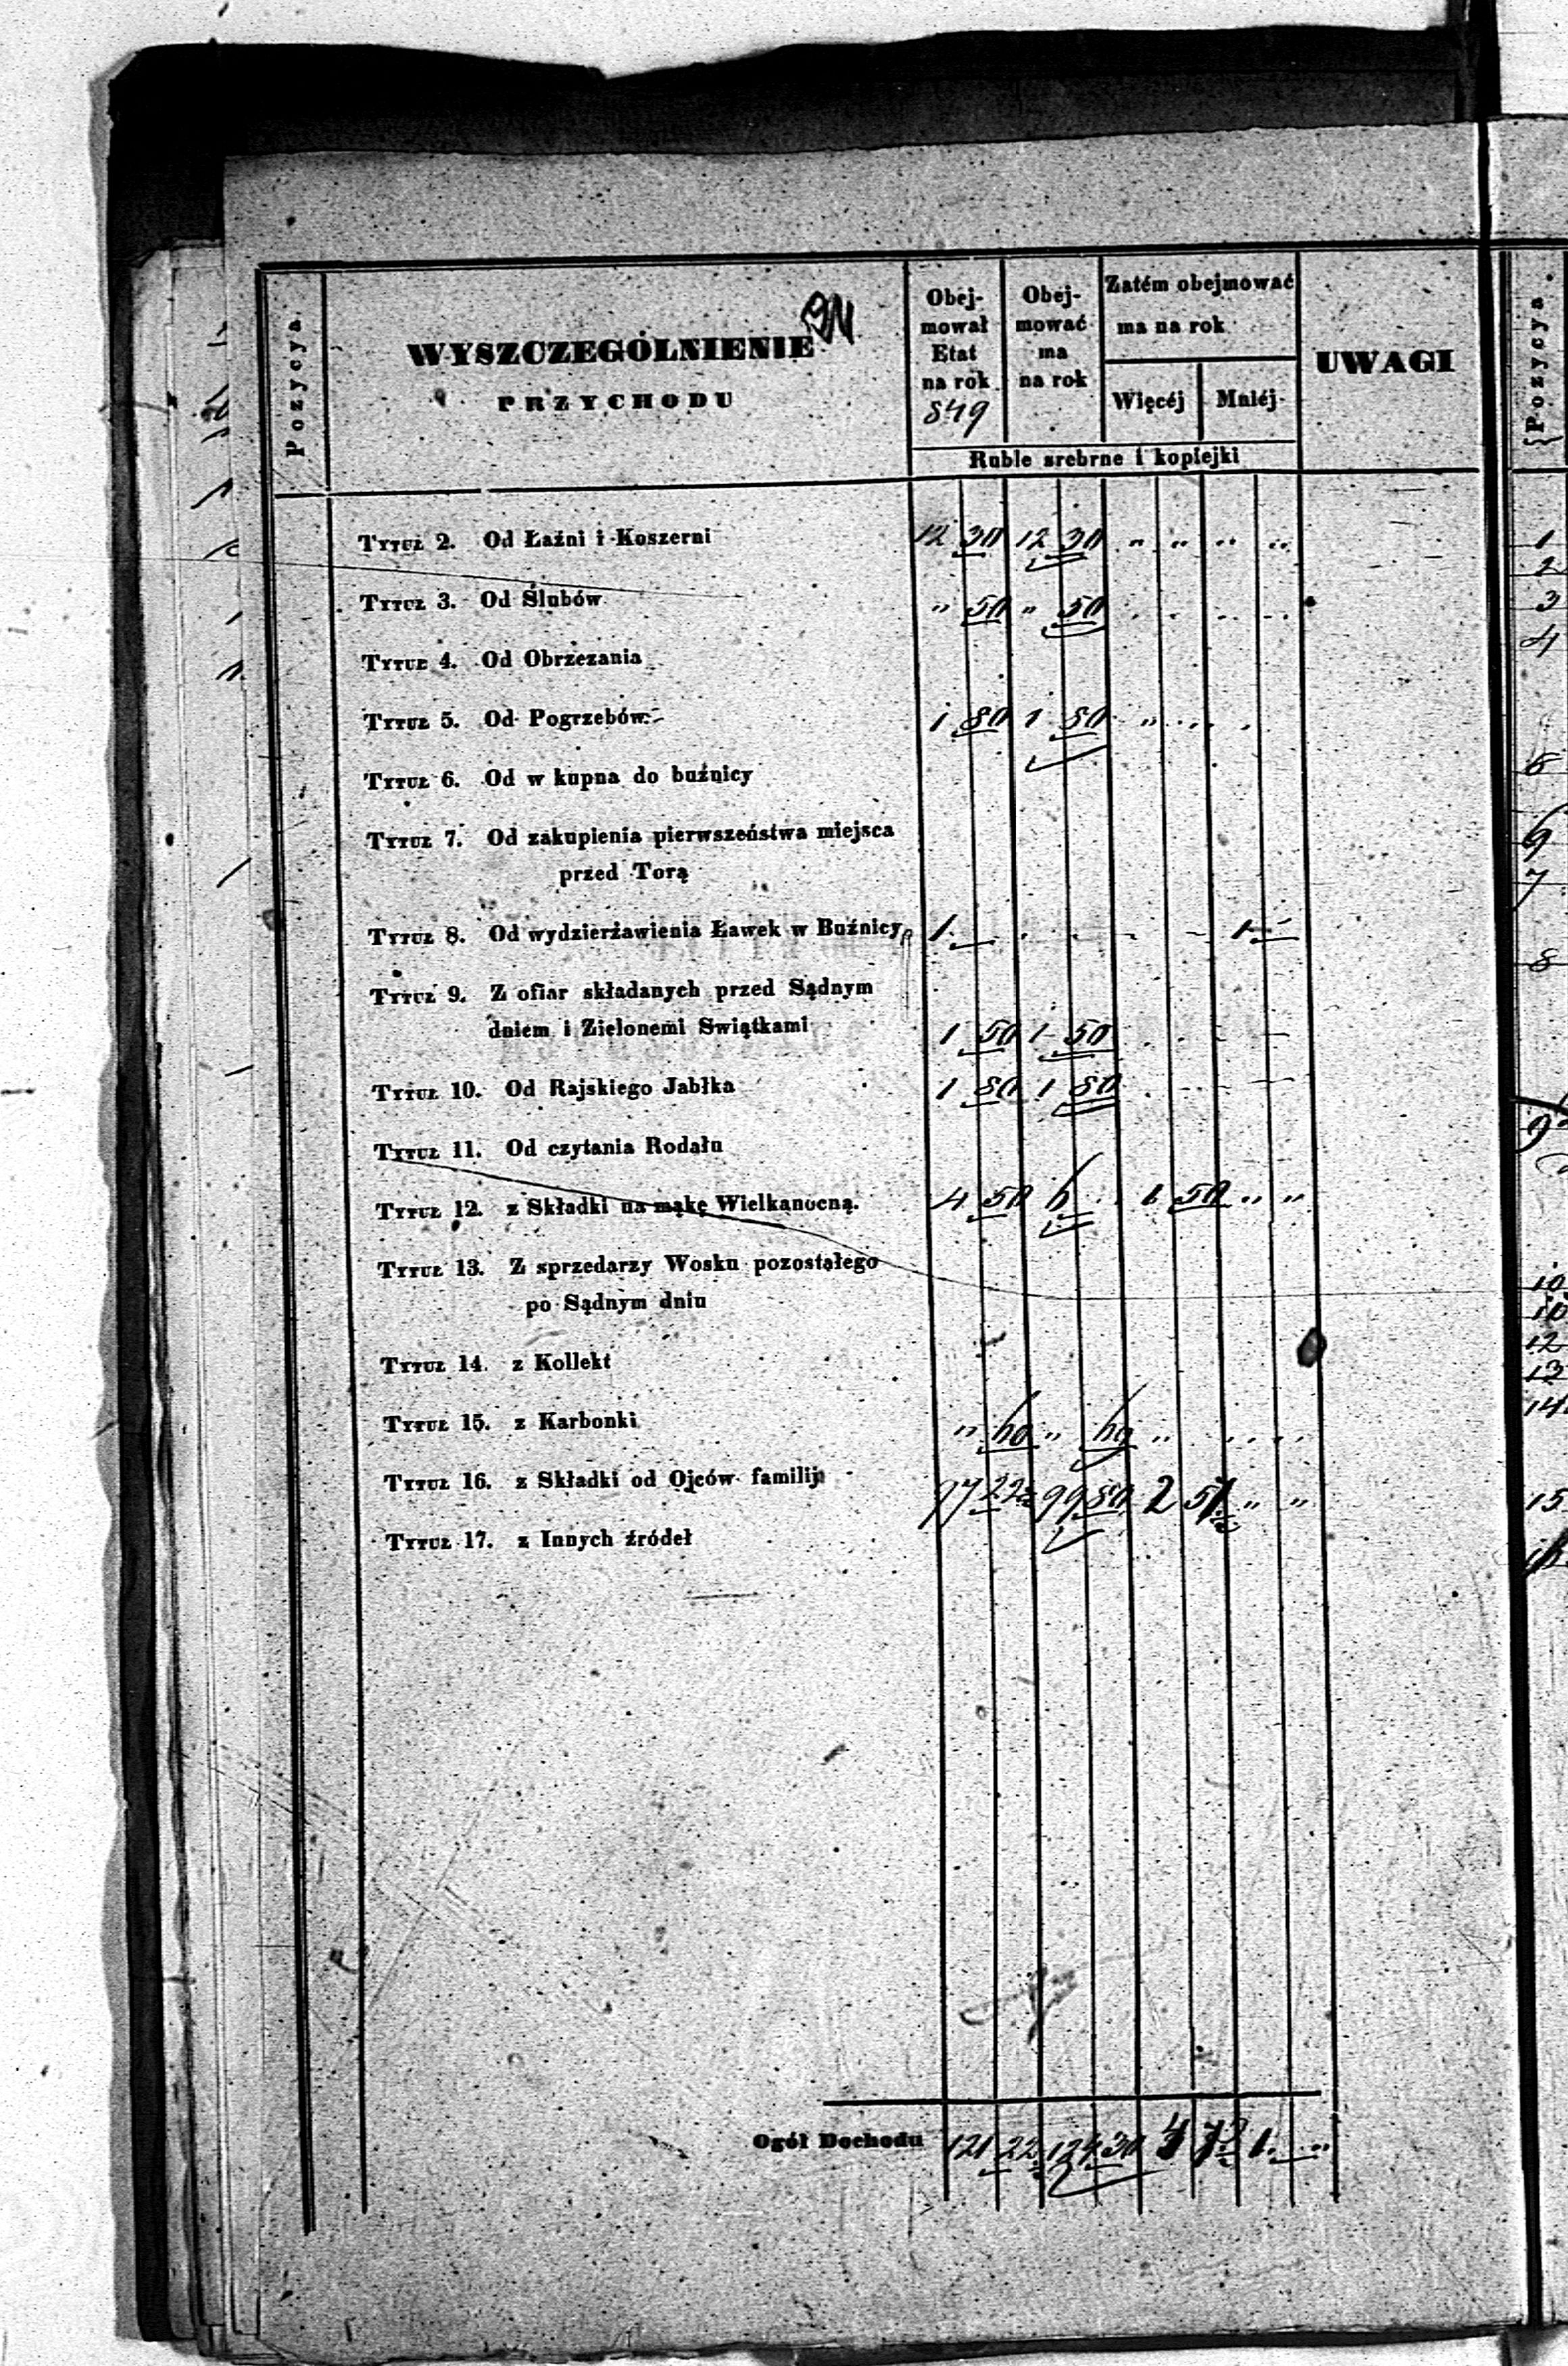 Pozycya.
WYSZCZEGÓLNIENIE
PRZYCHODU
Obej-
mował
Etat
na rok
849
Obej-
mować
ma
na rok
Zatém obejmować
ma na rok
Więcéj
Mniéj
Ruble srebrne i kopiejki
UWAGI
Tytuł 2. Od Łaźni i Koszerni 12 30 12 30 " " " "
Tytuł 3. Od Ślubów " 50 " 50
Tytuł 4. Od Obrzezania
Tytuł 5. Od Pogrzebów 1 80 1 80
Tytuł 6. Od w kupna do buźnicy
Tytuł 7. Od zakupienia pierwszeństwa miejsca
przed Torą
Tytuł 8. Od wydzierżawienia Ławek w Buźnicy 1 - 1 -
Tytuł 9. Z ofiar składanych przed Sądnym
dniem i Zielonemi Swiątkami 1 50 1 50
Tytuł 10. Od Rajskiego Jabłka 1 80 1 80
Tytuł 11. Od czytania Rodału
Tytuł 12. z Składki na mąkę Wielkanocną. 4 50 6 - 1 50 " "
Tytuł 13. Z sprzedarzy Wosku pozostałego
po Sądnym dniu
Tytuł 14. z Kollekt
Tytuł 15. z Karbonki " 60 " 60 "
Tytuł 16. z Składki od Ojców familij 97 22½ 99 80 2 57½ " "
Tytuł 17. z Innych źródeł
Ogół Dochodu 121 22½ 124 30 4 1 - "
Pozycya.
1
2
3
4
6
7
8
9
10
12
13
14
15